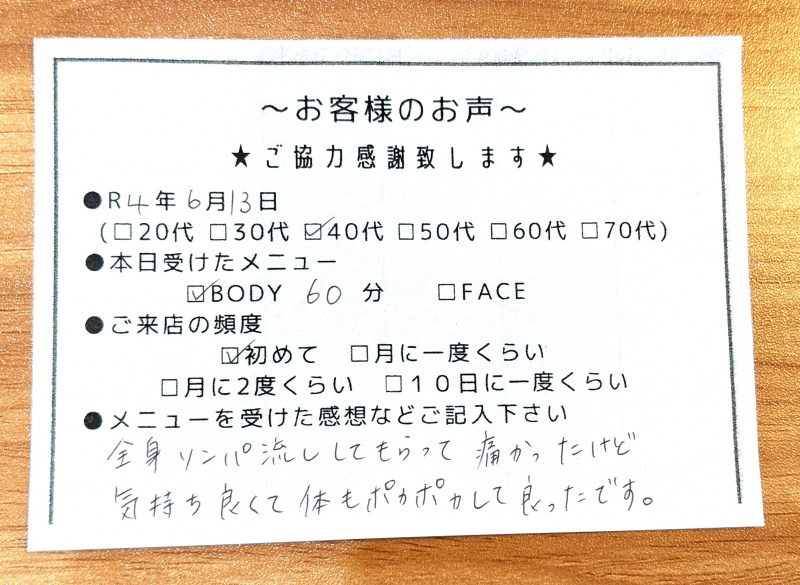 ～お客様のお声～
★ご協力感謝致します★
●R4年6月13日
(□20代 □30代 ☑40代 □50代 □60代 □70代)
●本日受けたメニュー
☑BODY 60分 □FACE
●ご来店の頻度
☑初めて □月に一度くらい
□月に2度くらい □10日に一度くらい
●メニューを受けた感想などご記入下さい
全身リンパ流ししてもらって 痛かったけど
気持ち良くて 体もポカポカして良ったです。